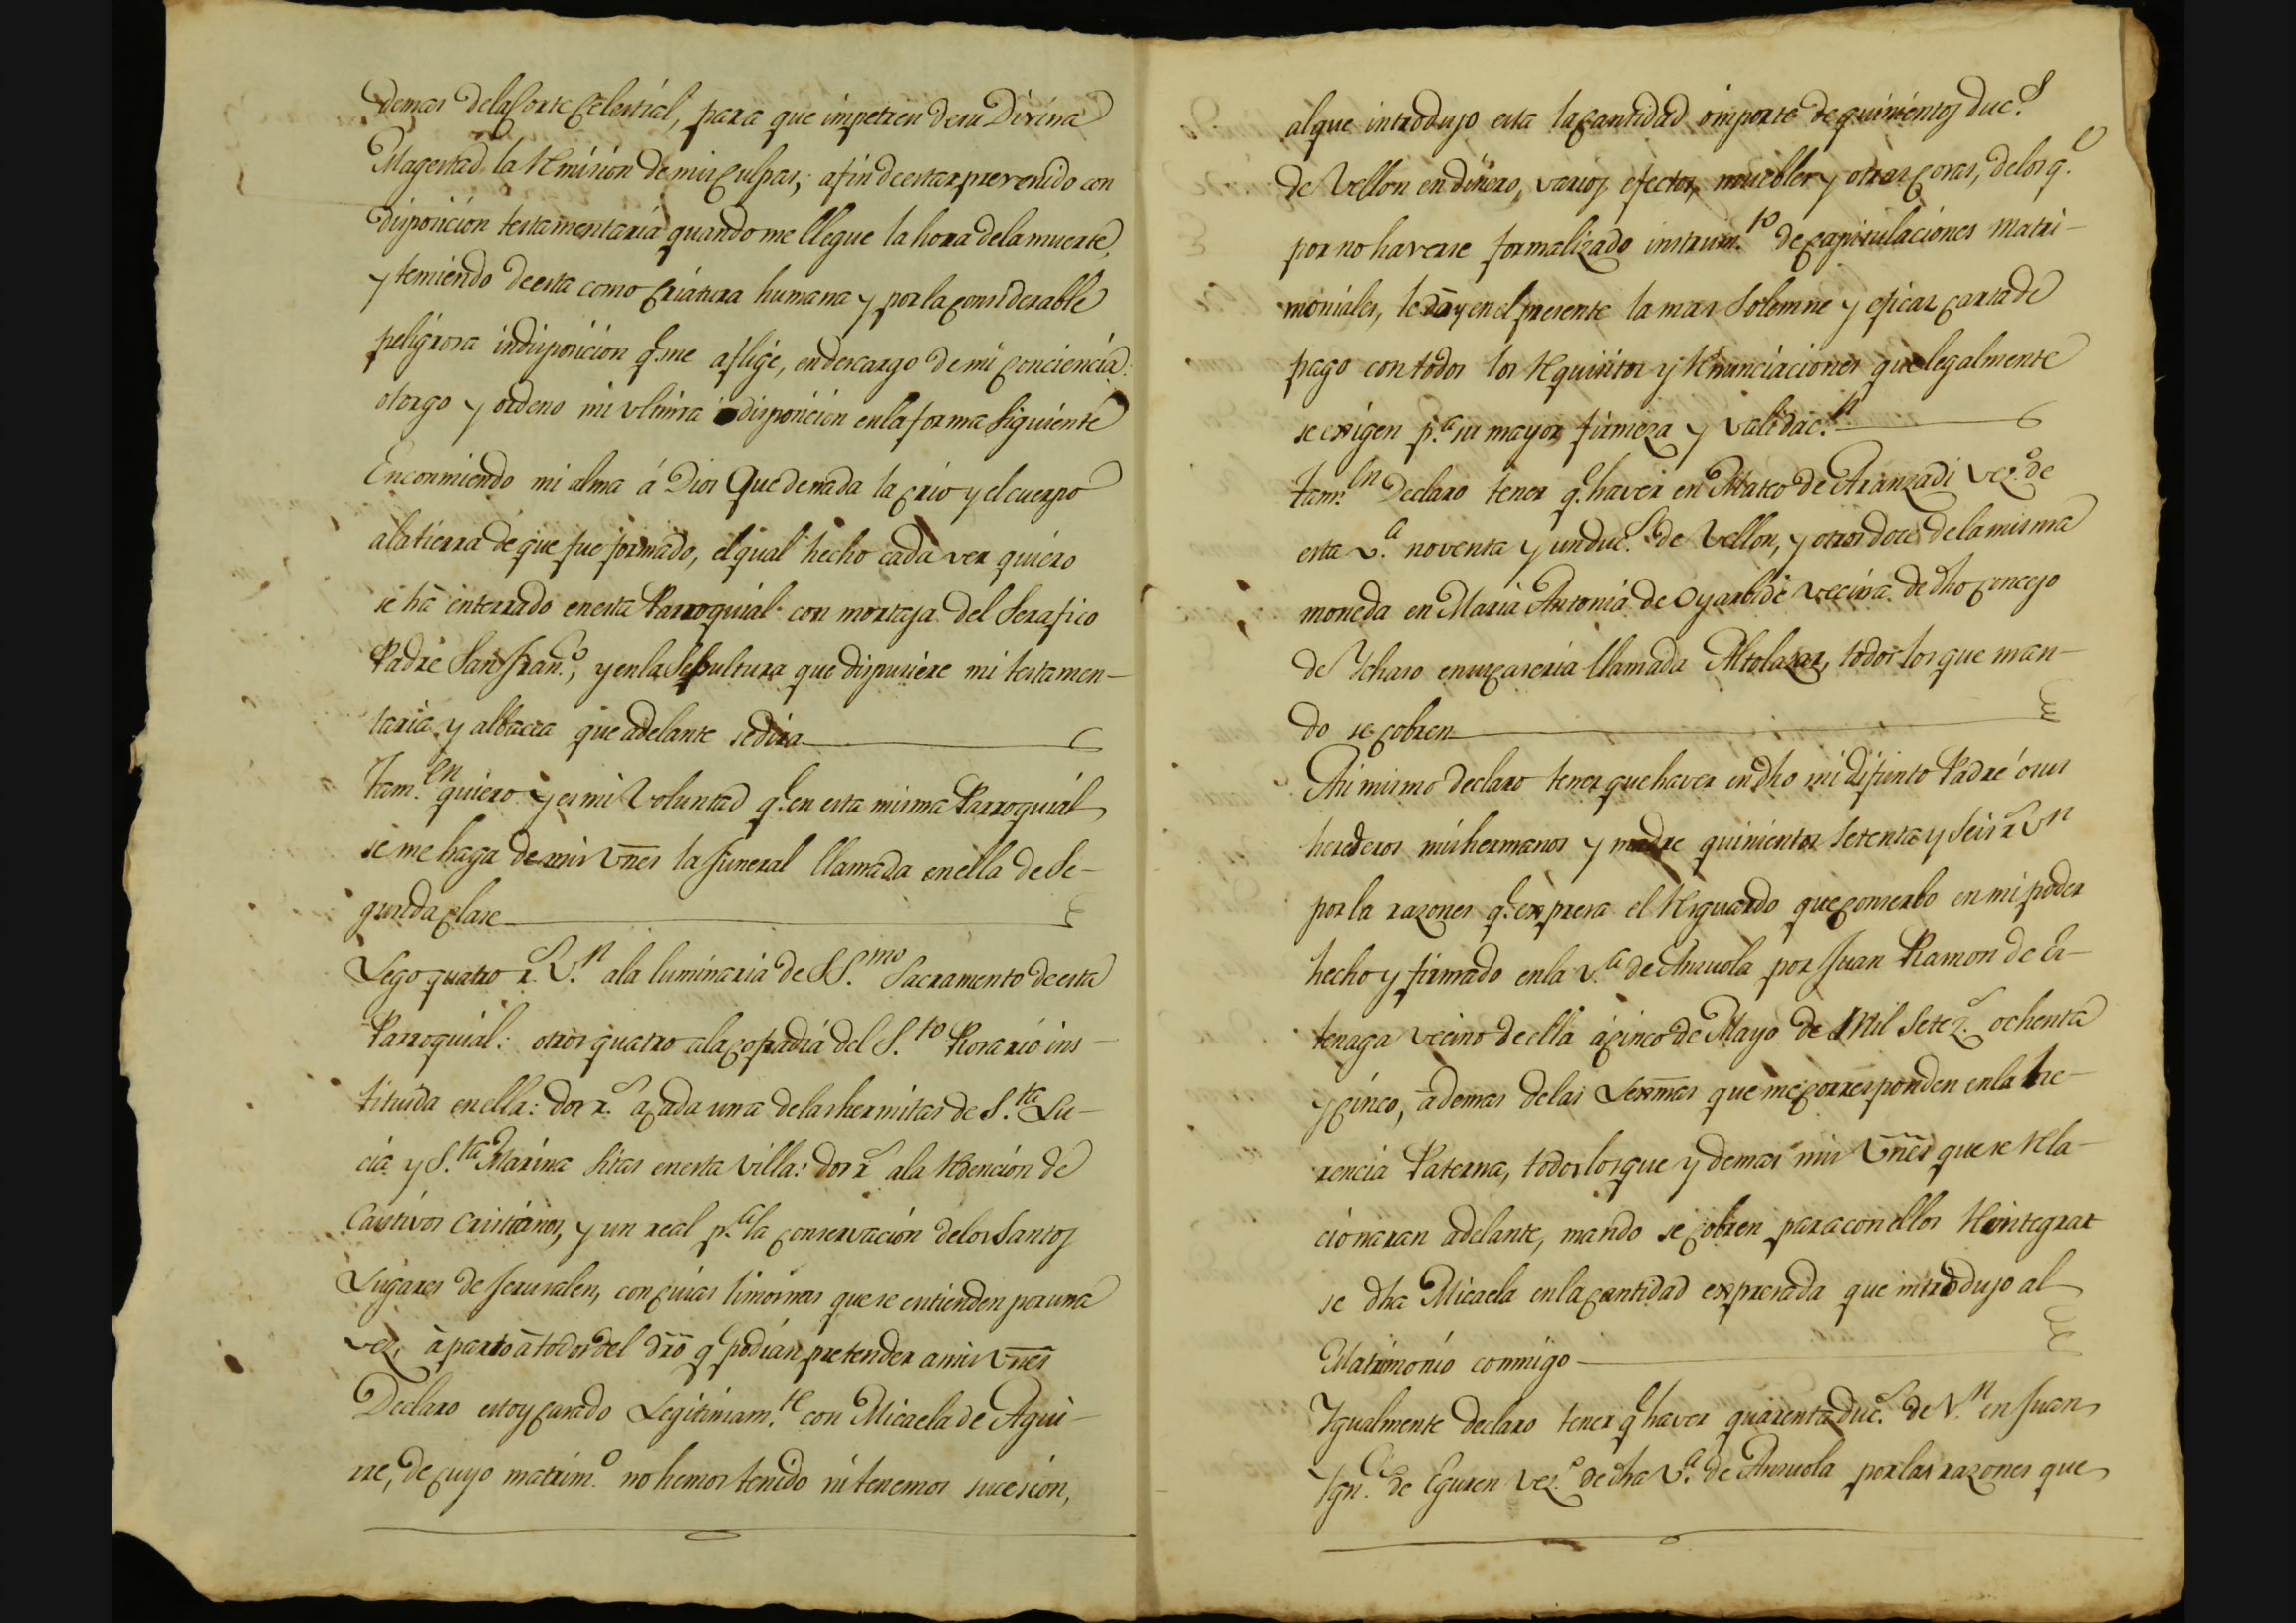 demas dela Corte Celestial, para que impetren de su Divina
Magestad la Remision de mis Culpas; afin de estar prevenido con
disposicion testamentaria quando me llegue la hora dela muerte,
y temiendo de esta como Criatura humana y por la considerable
peligrosa indisposicion q.e me aflige, en descargo de mi Conciencia:
otorgo y ordeno mi ultima disposicion en la forma siguiente
Encomiendo mi alma á Dios que de nada la crio y el cuerpo
ala tierra de que fue formado, el qual hecho cadaver quiero
se hā enterrado en esta Parroquial con mortaja del Serafico
Padre San Fran.co, y en la Sepultura que dispusiere mi testamen-
taria y albacea que adelante se dira
Tam.en quiero y es mi Voluntad q.e en esta misma Parroquial
se me haga de mis vnēs la funeral llamada en ella de Se-
gunda clase
Lego quatro r.s V.n ala luminaria de SS.mo Sacramento de esta
Parroquial: otros quatro ala Cofradia del S.to Rosario ins-
tituida en ella: dos r.s a cada una de las hermitas de S.ta Lu-
cia y S.ta Marina sitas en esta Villa: dos r.s ala Redencion de
Cautivos Cristianos, y un real p.a la conservacion de los Santos
Lugares de Jerusalen, con cuias limosnas que se entienden por una
vez, àparto à todos del dr̃o q.e podian pretender a mis vnēs
Declaro estoy casado Legitimam.te con Micaela de Agui-
rre, de cuyo matrim.o no hemos tenido ni tenemos sucesion,
al que introdujo esta la cantidad ó importe de quinientos duc.s
de Vellon en dinero, varios efectos, muebles y otras cosas, de los q.e
por no haverse formalizado instrum.to de capitulaciones matri-
moniales, le doy en el presente la mas solemne y eficaz carta de
pago con todos los Requisitos y Renunciaciones que legalmente
se exigen p.a su mayor firmeza y validac.n
Tam.en Declaro tener q.e haver en Mateo de Aranzadi vez.o de
esta v.a noventa y un duc.s de Vellon, y otros doce de la misma
moneda en Maria Antonia de Oyarbide vecina de dho Concejo
de Ychaso en su caseria llamada Altolazar, todos los que man-
do se cobren
Asi mismo declaro tener que haver en dho mi difunto Padre ó sus
herederos mis hermanos y madre quinientos setenta y seis r.s Vn
por la razones q.e expresa el Resguardo que conserbo en mi poder
hecho y firmado en la v.a de Anzuola por Juan Ramon de Er-
tenaga vecino de ella à cinco de Mayo de Mil Setez.s ochenta
y cinco, ademas de las Lexm̃as que me corresponden en la he-
rencia Paterna, todos los que y demas mis vnēs que se Rela-
cionaran adelante, mando se cobren para con ellos Reintegrar
se dha Micaela en la cantidad expresada que introdujo al
Matrimonio conmigo
Ygualmente declaro tener q.e haver quarenta duc.s de V.n en Juan
Ygn.o de Eguren vez.o de dha V.a de Anzuola por las razones que